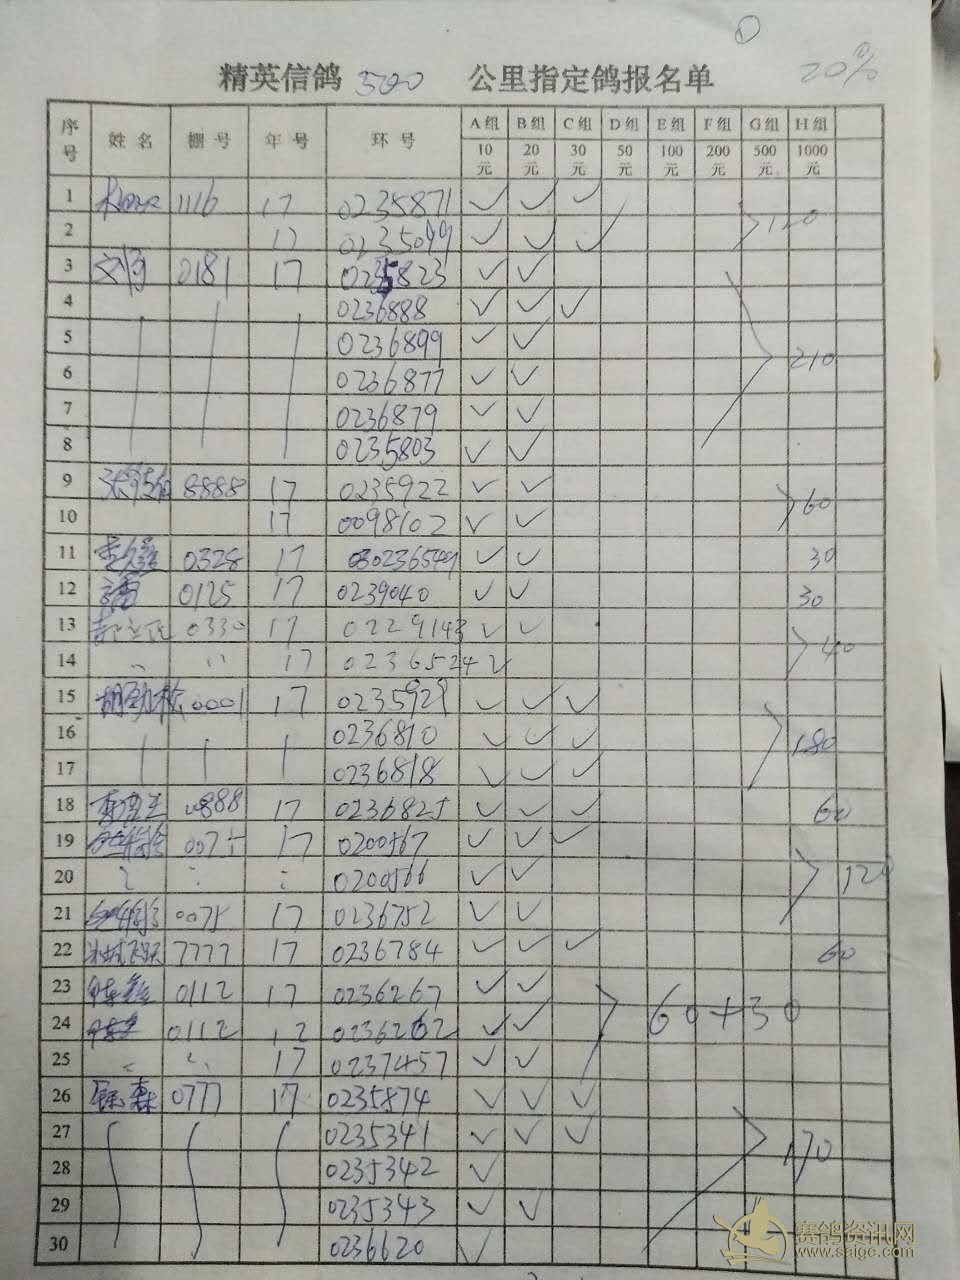 ①
20%
精英信鸽 500 公里指定鸽报名单
序号 姓名 棚号 年号 环号 A组 B组 C组 D组 E组 F组 G组 H组
10元 20元 30元 50元 100元 200元 500元 1000元
1 1116 17 0235871 ✓ ✓ ✓
2 17 0235099 ✓ ✓ ✓ 120
3 0181 17 0235823 ✓ ✓
4 0236888 ✓ ✓ ✓
5 0236899 ✓ ✓
6 0236877 ✓ ✓ 210
7 0236879 ✓ ✓
8 0235803 ✓ ✓
9 8888 17 0235922 ✓ ✓
10 17 0098102 ✓ ✓ 60
11 0328 17 0236549 ✓ ✓ 30
12 0125 17 0239040 ✓ ✓ 30
13 0330 17 0229143 ✓ ✓
14 〃 〃 17 0236524 ✓ 40
15 胡劲松 0001 17 0235929 ✓ ✓ ✓
16 0236810 ✓ ✓ ✓ 180
17 0236818 ✓ ✓ ✓
18 0888 17 0236825 ✓ ✓ ✓ 60
19 0075 17 0200567 ✓ ✓ ✓
20 0200566 ✓ ✓ 120
21 0075 17 0236752 ✓ ✓
22 7777 17 0236784 ✓ ✓ ✓ 60
23 0112 17 0236267 ✓ ✓
24 0112 12 0236262 ✓ ✓ 60+30
25 〃 〃 17 0237457 ✓ ✓
26 0777 17 0235874 ✓ ✓ ✓
27 0235341 ✓ ✓ ✓
28 0235342 ✓ 170
29 0235343 ✓ ✓
30 0236620 ✓
赛鸽资讯网
www.saigc.com